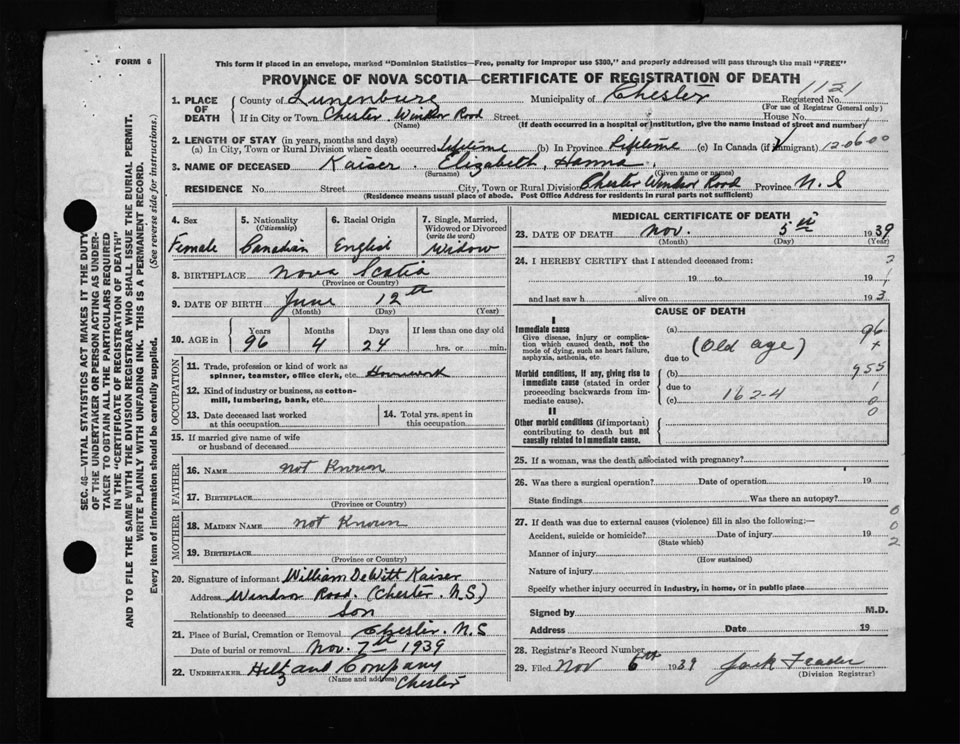 FORM 6
This form if placed in an envelope, marked "Dominion Statistics—Free, penalty for improper use $300," and properly addressed will pass through the mail "FREE"
PROVINCE OF NOVA SCOTIA—CERTIFICATE OF REGISTRATION OF DEATH
1121
1. PLACE OF DEATH
County of Lunenburg Municipality of Chester Registered No.
(For use of Registrar General only)
If in City or Town Chester Windsor Road Street House No.
(Name) (If death occurred in a hospital or institution, give the name instead of street and number)
2. LENGTH OF STAY (in years, months and days)
(a) In City, Town or Rural Division where death occurred Lifetime (b) In Province Lifetime (c) In Canada (if immigrant) 12-0600
3. NAME OF DECEASED Kaiser. Elizabeth, Hanna.
(Surname) (Given name or names)
RESIDENCE No. Street City, Town or Rural Division Chester Windsor Road Province N.S
(Residence means usual place of abode. Post Office Address for residents in rural parts not sufficient)
SEC. 46—VITAL STATISTICS ACT MAKES IT THE DUTY
OF THE UNDERTAKER OR PERSON ACTING AS UNDER-
TAKER TO OBTAIN ALL THE PARTICULARS REQUIRED
IN THE "CERTIFICATE OF REGISTRATION OF DEATH"
AND TO FILE THE SAME WITH THE DIVISION REGISTRAR WHO SHALL ISSUE THE BURIAL PERMIT.
WRITE PLAINLY WITH UNFADING INK. THIS IS A PERMANENT RECORD.
Every item of information should be carefully supplied. (See reverse side for instructions.)
4. Sex 5. Nationality 6. Racial Origin 7. Single, Married,
(Citizenship) Widowed or Divorced
(write the word)
Female Canadian English Widow
8. BIRTHPLACE Nova Scotia
(Province or Country)
9. DATE OF BIRTH June 12th
(Month) (Day) (Year)
10. AGE in Years Months Days If less than one day old
96 4 24 hrs. or min.
OCCUPATION
11. Trade, profession or kind of work as
spinner, teamster, office clerk, etc. Housework
12. Kind of industry or business, as cotton-
mill, lumbering, bank, etc.
13. Date deceased last worked
at this occupation
14. Total yrs. spent in
this occupation
15. If married give name of wife
or husband of deceased
FATHER
16. NAME not Known
17. BIRTHPLACE
(Province or Country)
MOTHER
18. MAIDEN NAME not Known
19. BIRTHPLACE
(Province or Country)
20. Signature of informant William DeWitt Kaiser
Address Windsor Road. (Chester. N.S)
Relationship to deceased Son
21. Place of Burial, Cremation or Removal Chester. N.S
Date of burial or removal Nov. 7th 1939
22. UNDERTAKER and Company
(Name and address) Chester
MEDICAL CERTIFICATE OF DEATH
23. DATE OF DEATH Nov. 5th 1939
(Month) (Day) (Year)
24. I HEREBY CERTIFY that I attended deceased from: 2
19 to 19 1
and last saw h alive on 19 3
CAUSE OF DEATH
I
Immediate cause
Give disease, injury or complica-
tion which caused death, not the
mode of dying, such as heart failure,
asphyxia, asthenia, etc.
(a) 96
(Old age) +
due to
Morbid conditions, if any, giving rise to
immediate cause (stated in order
proceeding backwards from im-
mediate cause).
(b) 955
due to 1
(c) 162-4 0
0
II
Other morbid conditions (if important)
contributing to death but not
causally related to immediate cause.
25. If a woman, was the death associated with pregnancy?
26. Was there a surgical operation? Date of operation 19
State findings Was there an autopsy?
27. If death was due to external causes (violence) fill in also the following:—
0
0
2
Accident, suicide or homicide? Date of injury 19
(State which)
Manner of injury
(How sustained)
Nature of injury
Specify whether injury occurred in industry, in home, or in public place
Signed by M.D.
Address Date 19
28. Registrar's Record Number
29. Filed Nov 6th 1939 Jack
(Division Registrar)